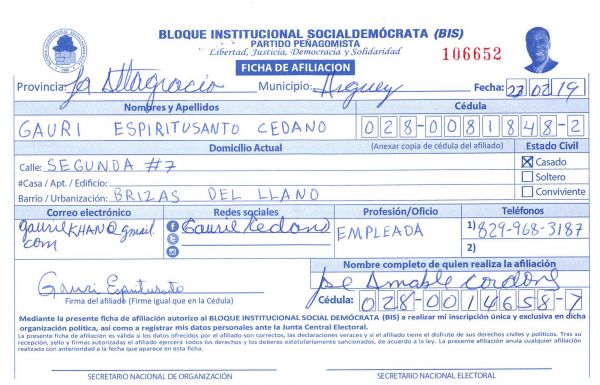 BLOQUE INSTITUCIONAL SOCIALDEMÓCRATA (BIS)
PARTIDO PEÑAGOMISTA
Libertad, Justicia, Democracia y Solidaridad
106652
FICHA DE AFILIACION
Provincia: La Altagracia Municipio: Higuey Fecha: 23 02 19
Nombres y Apellidos Cédula
GAURI ESPIRITUSANTO CEDANO 028-0081848-2
Domicilio Actual (Anexar copia de cédula del afiliado) Estado Civil
Calle: SEGUNDA #7 Casado
#Casa / Apt. / Edificio: Soltero
Barrio / Urbanización: BRIZAS DEL LLANO Conviviente
Correo electrónico Redes sociales Profesión/Oficio Teléfonos
gaurilKHAN@gmail Gauril Cedano EMPLEADA 1) 829-968-3187
com 2)
Nombre completo de quien realiza la afiliación
Gauri Espiritusanto Jose Amable
Firma del afiliado (Firme igual que en la Cédula) Cédula: 028-0014658-7
Mediante la presente ficha de afiliación autorizo al BLOQUE INSTITUCIONAL SOCIAL DEMÓCRATA (BIS) a realizar mi inscripción única y exclusiva en dicha
organización política, así como a registrar mis datos personales ante la Junta Central Electoral.
La presente ficha de afiliación es válida si los datos ofrecidos por el afiliado son correctos, las declaraciones veraces y si el afiliado tiene el disfrute de sus derechos civiles y políticos. Tras su
recepción, sello y firmas autorizadas el afiliado ejercerá todos los derechos y los deberes estatutariamente sancionados, de acuerdo a la ley. La presente afiliación anula cualquier afiliación
realizada con anterioridad a la fecha que aparece en esta ficha.
SECRETARIO NACIONAL DE ORGANIZACIÓN SECRETARIO NACIONAL ELECTORAL